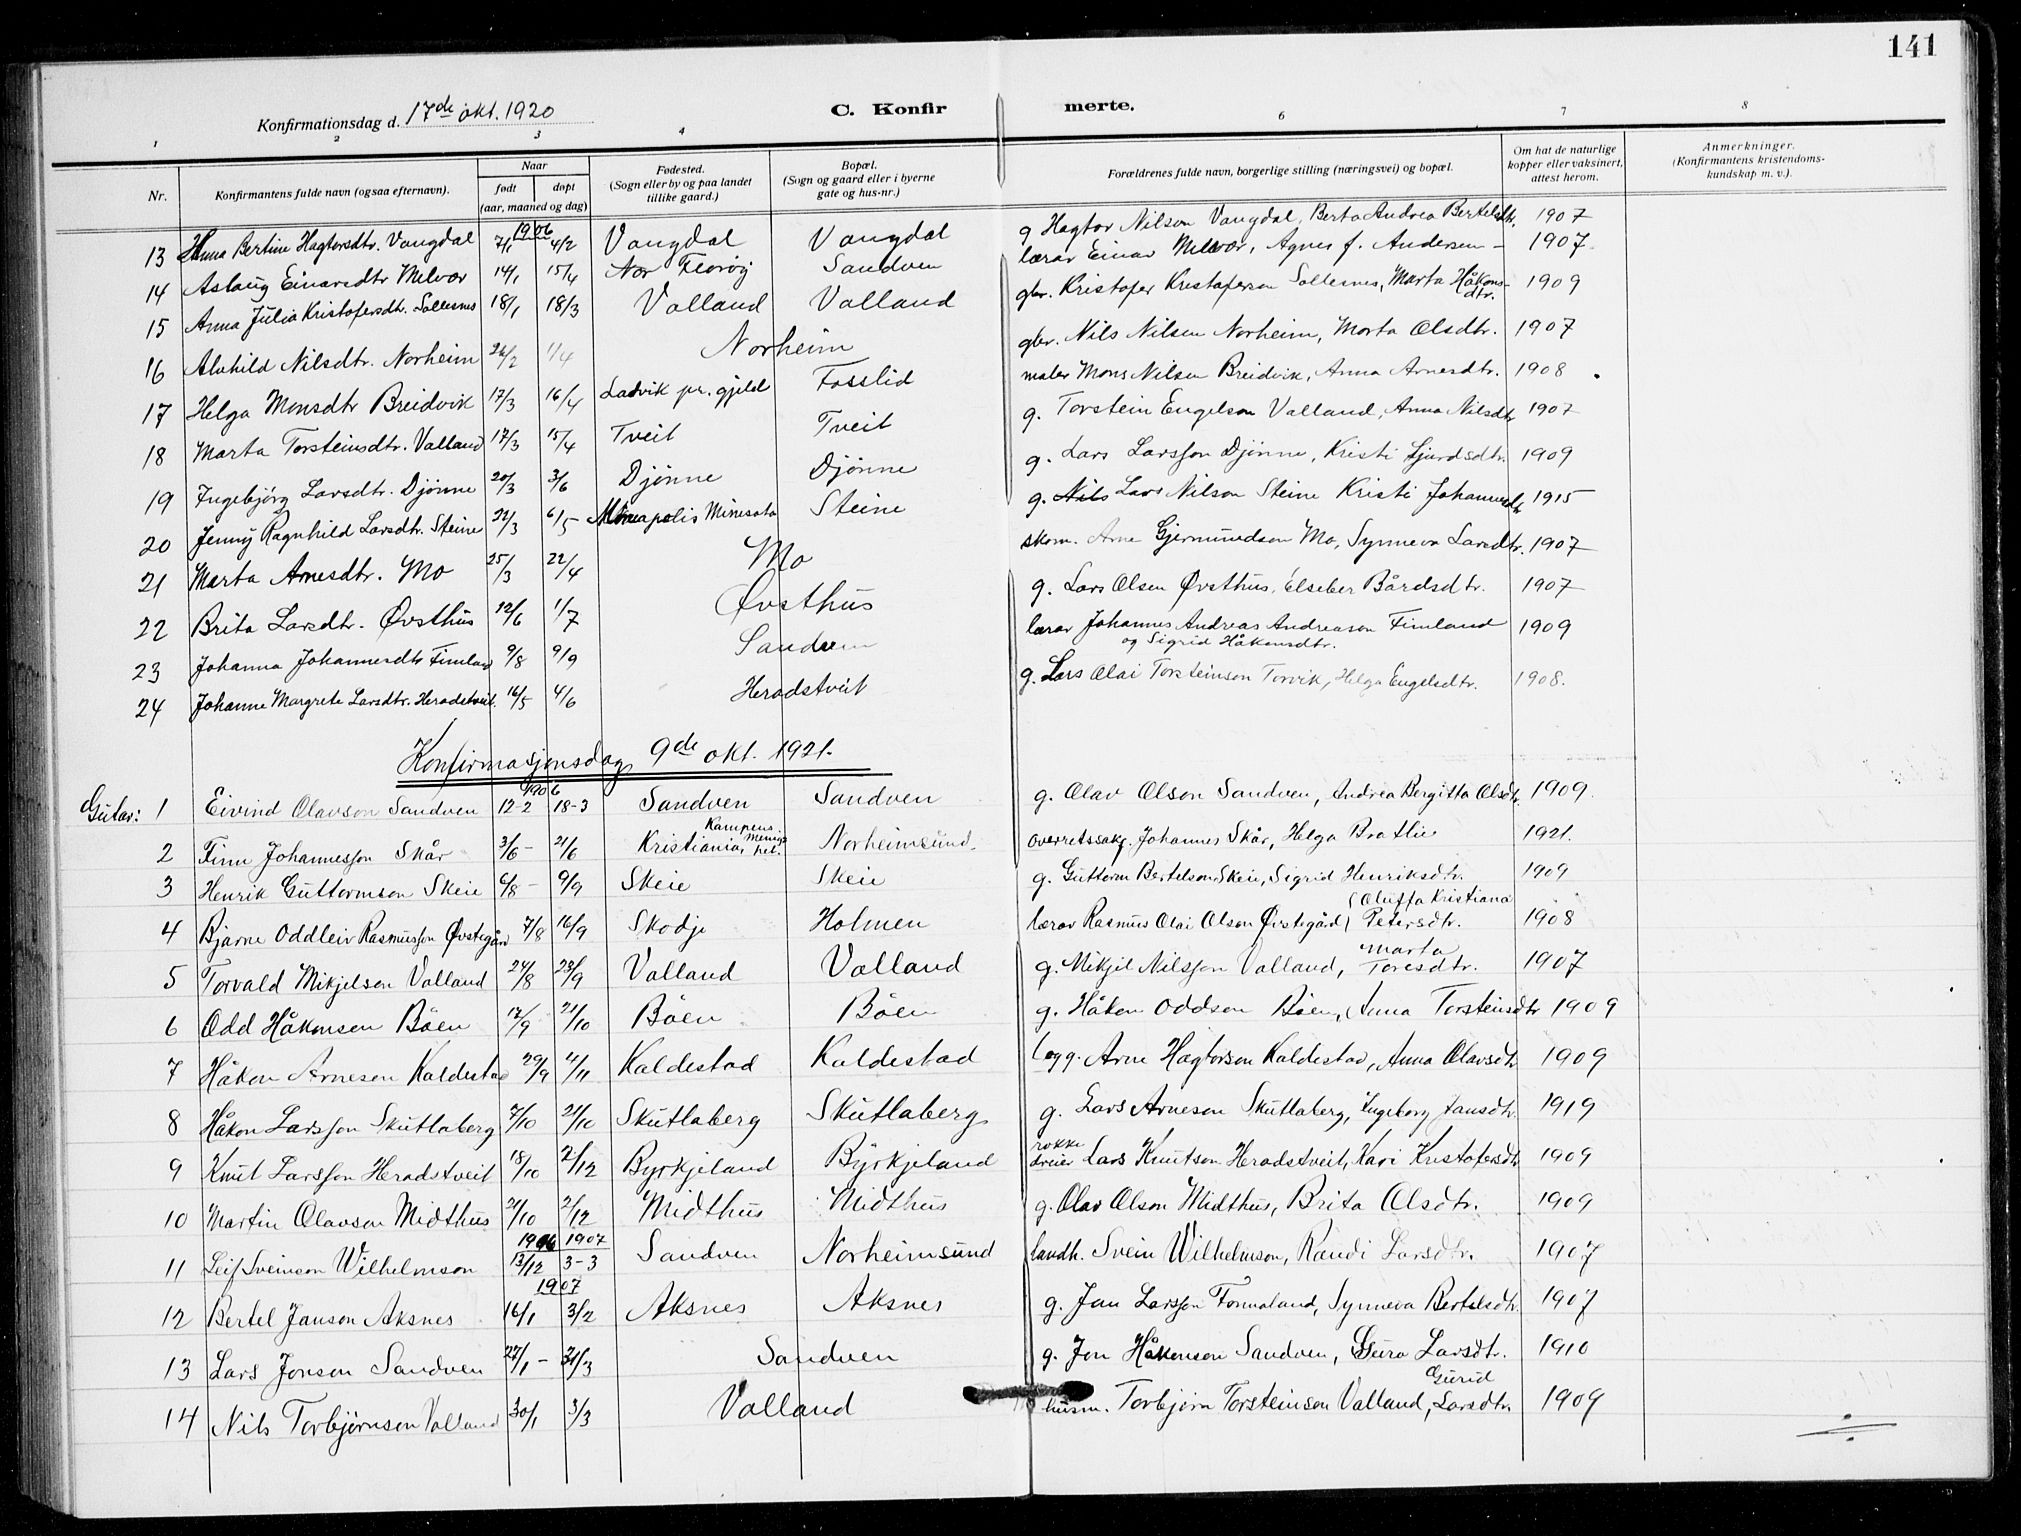 141
Konfirmationsdag d. 17de okt. 1920
C. Konfirmerte.
1 2 3 4 6 7 8
Nr. Konfirmantens fulde navn (ogsaa efternavn). Naar født døpt (aar, maaned og dag) Fødested. (Sogn eller by og paa landet tillike gaard.) Bopæl. (Sogn og gaard eller i byerne gate og hus-nr.) Forældrenes fulde navn, borgerlige stilling (næringsvei) og bopæl. Om hat de naturlige kopper eller vaksinert, attest herom. Anmerkninger. (Konfirmantens kristendomskundskap m. v.).
1906
13 Anna Bertine Hagtorsdtr. Vangdal 7/1 4/2 Vangdal Vangdal g Hagtor Nilson Vangdal, Berta Andrea Bertelsdtr. 1907
14 Aslaug Einarsdtr Melvær 14/1 15/4 Nor Florøy Sandven lærar Einar Melvær, Agnes f. Andersen – 1907
15 Anna Julia Kristofersdtr. Sollesnes 18/1 18/3 Valland Valland gbr. Kristofer Kristoferson Sollesnes, Marta Håkonsdtr. 1909
16 Alvhild Nilsdtr. Norheim 26/2 1/4 Norheim gbr. Nils Nilsen Norheim, Marta Olsdtr. 1907
17 Helga Monsdtr Breidvik 17/3 16/4 Ladvik pr.gjeld Fosslid maler Mons Nilsen Breidvik, Anna Arnesdtr. 1908
18 Marta Torsteinsdtr. Valland 17/3 15/4 Tveit Tveit g. Torstein Engelson Valland, Anna Nilsdtr 1907
19 Ingebjörg Larsdtr. Djönne 20/3 3/6 Djönne Djönne g. Lars Larsson Djönne, Kristi Sjurdsdtr. 1909
20 Jenny Ragnhild Larsdtr. Steine 22/3 6/5 Mineapolis Minesota Steine g. Nils Lars Nilson Steine Kristi Johannesdtr 1915
21 Marta Arnesdtr. Mo 25/3 22/4 Mo skom. Arne Gjermundson Mo, Synneva Larsdtr. 1907
22 Brita Larsdtr. Øvsthus 12/6 1/7 Øvsthus g. Lars Olsen Øvsthus, Elseber Bårdsdtr. 1907
23 Johanna Johannesdtr Fimland 9/8 9/9 Sandven lærar Johannes Andreas Andreason Fimland og Sigrid Håkonsdtr. 1909
24 Johanne Margrete Larsdtr. Heradstveit 16/5 4/6 Heradstveit g. Lars Olai Torsteinson Torvik, Helga Engelsdtr. 1908.
Konfirmasjonsdag 9de okt. 1921.
1906
Gutar: 1 Eivind Olavson Sandven 12-2 18-3 Sandven Sandven g. Olav Olson Sandven, Andrea Bergitta Olsdtr. 1909.
2 Finn Johannesson Skår 3/6 – 21/6 Kristiania, Kampens menigh. Norheimsund. overretssakf. Johannes Skår, Helga Bratlie 1921.
3 Henrik Guttormson Skeie 6/8 – 9/9 Skeie Skeie g. Guttorm Bertelson Skeie, Sigrid Henriksdtr. 1909
4 Bjarne Oddleiv Rasmusson Øvstegård 7/8 16/9 Skodje Holmen lærar Rasmus Olai Olson Øvstegård, Oluffa Kristiana Petersdtr. 1908
5 Torvald Mikjelson Valland 24/8 23/9 Valland Valland g. Mikjel Nilsson Valland, Marta Toresdtr. 1907
6 Odd Håkonsen Böen 17/9 21/10 Böen Böen g. Håkon Oddson Böen, Anna Torsteinsdtr 1909
7 Håkon Arneson Kaldestad 29/9 4/11 Kaldestad Kaldestad bygg. Arne Hagtorson Kaldestad, Anna Olavsdtr 1909
8 Håkon Larsson Skutlaberg 7/10 21/10 Skutlaberg Skutlaberg g. Lars Arneson Skutlaberg, Ingeborg Jansdtr. 1919
9 Knut Larsson Heradstveit 18/10 2/12 Byrkjeland Byrkjeland rokkedreier Lars Knutson Heradstveit, Kari Kristofersdtr 1909
10 Martin Olavson Midthus 21/10 2/12 Midthus Midthus g. Olav Olson Midthus, Brita Olsdtr. 1909
1906 1907
11 Leif Sveinson Wilhelmson 13/12 3-3 Sandven Norheimsund landh. Svein Wilhelmson, Randi Larsdtr. 1907
1907
12 Bertel Janson Aksnes 16/1 3/2 Aksnes Aksnes g. Jan Larsson Tornaland, Synneva Bertelsdtr. 1907
13 Lars Jonson Sandven 27/1 – 31/3 Sandven g. Jon Håkonson Sandven, Guro Larsdtr. 1910
14 Nils Torbjörnson Valland 30/1 3/3 Valland husm. Torbjörn Torsteinson Valland, Gurid Larsdtr. 1909